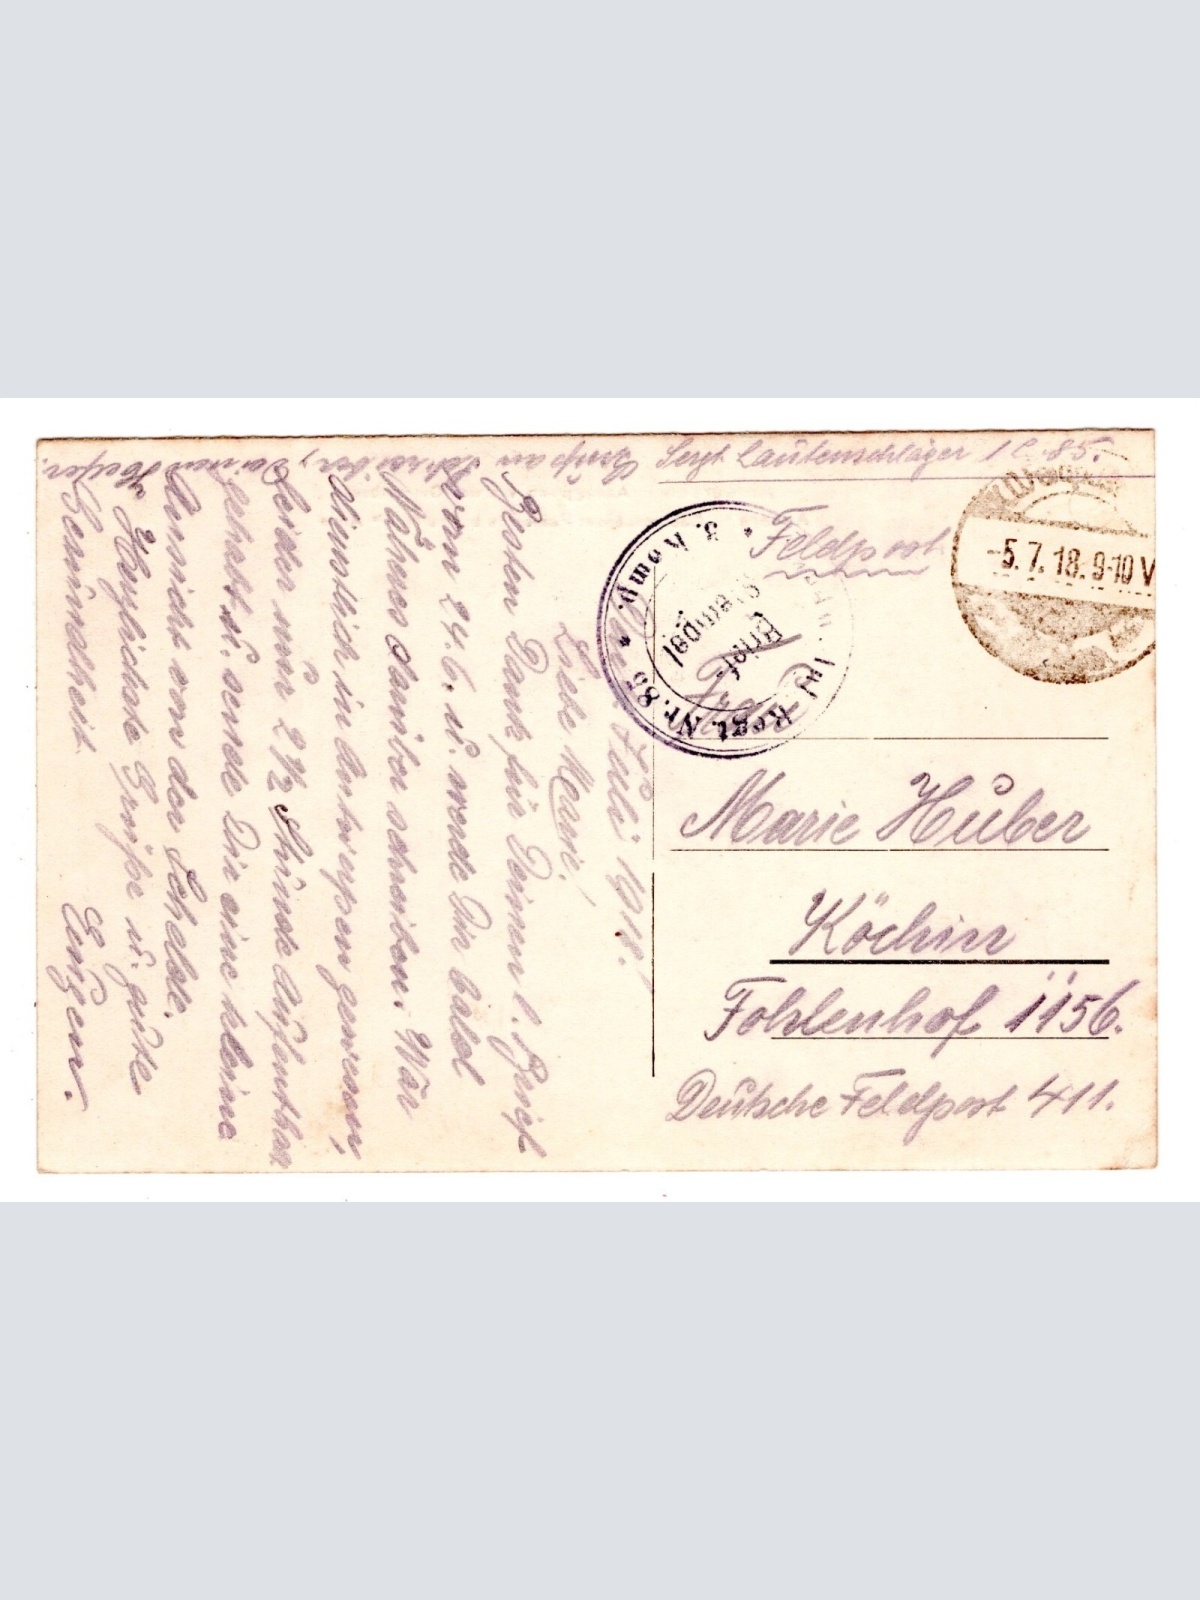 Sergt Lautenschläger 1 C. 85.
Feldpost
-5.7.18.9-10 V
Inf. Regt. Nr. 85 * 3. Komp. *
Brief-
Stempel
Frau
Marie Huber
Köchin
Fohlenhof 1156.
Deutsche Feldpost 411.
Juli 1918!
Liebe Marie!
Besten Dank für Deinen l. Brief
vom 24.6. u. werde Dir bald
Näheres darüber schreiben. War
dienstlich in Antwerpen gewesen,
leider nur 2 1/2 Stunde Aufenthalt
gehabt u. sende Dir eine kleine
Ansicht von der Schelde.
Herzlichste Grüße u. gute
Gesundheit
Eugen.
Gruß an Schreiber,